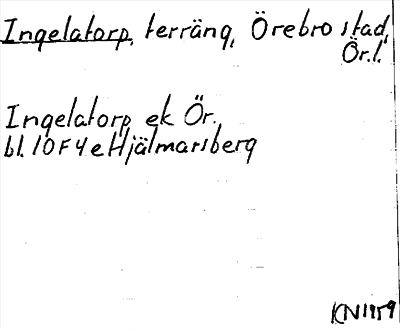 Ingelatorp, terräng, Örebro stad,
Ör.l.
Ingelatorp ek Ör.,
bl. 10F4e Hjälmarsberg
KN1959